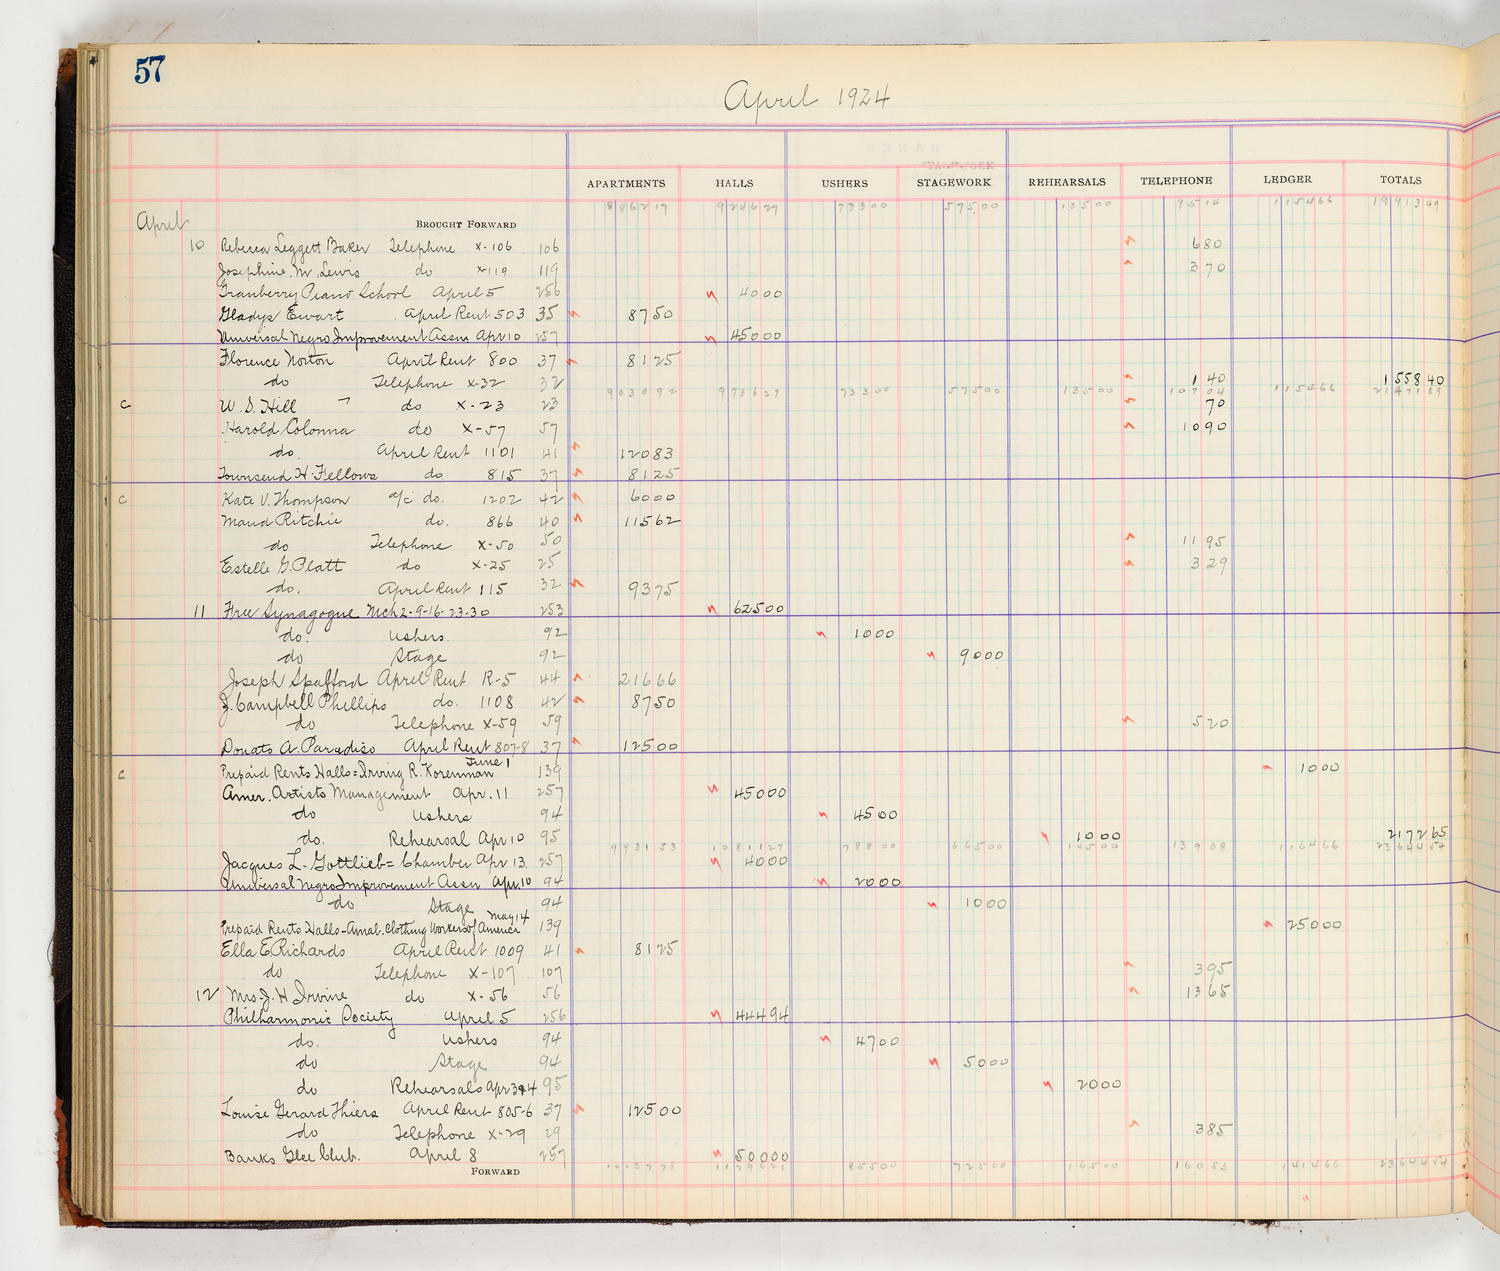 57
April 1924
APARTMENTS HALLS USHERS STAGEWORK REHEARSALS TELEPHONE LEDGER TOTALS
April BROUGHT FORWARD 886217 924627 73300 57500 13500 9514 115466
10 Rebecca Leggett Baker Telephone X-106 106 680
Josephine M. Lewis do X-119 119 370
Granberry Piano School April 5 256 4000
Gladys Ewart April Rent 503 35 8750
Universal Negro Improvement Assn Apr 10 257 45000
Florence Norton April Rent 800 37 8125
do Telephone X-32 32 140 155840
903092 973627 73300 57500 13500 10704 115466
c W. S. Hill do X-23 23 70
Harold Colonna do X-57 57 1090
do. April Rent 1101 41 12083
Townsend H. Fellows do 815 37 8125
c Kate V. Thompson a/c do. 1202 42 6000
Maud Ritchie do. 866 40 11562
do Telephone X-50 50 1195
Estelle G. Platt do X-25 25 329
do. April Rent 115 32 9375
11 Free Synagogue Mch 2-9-16-23-30 253 62500
do. Ushers 92 1000
do Stage 92 9000
Joseph Spafford April Rent R-5 44 21666
J. Campbell Phillips do. 1108 42 8750
do Telephone X-59 59 520
Donato A. Paradiso April Rent 807-8 37 12500
June 1
c Prepaid Rents Halls = Irving R. Korenman 139 1000
Amer. Artists Management Apr. 11 257 45000
do Ushers 94 4500
do. Rehearsal Apr 10 95 1000 217265
993153 1081127 78800 66500 14500 13908 116466
Jacques L. Gottlieb = Chamber Apr 13. 257 4000
Universal Negro Improvement Assn Apr. 10 94 2000
do Stage 94 1000
May 14
Prepaid Rents Halls - Amal. Clothing Workers of America 139 25000
Ella E Richards April Rent 1009 41 8125
do Telephone X-107 107 395
12 Mrs. J. H Irvine do X-56 56 1365
Philharmonic Society April 5 256 44494
do. Ushers 94 4700
do Stage 94 5000
do Rehearsals Apr 3&4 95 2000
Louise Gerard Thiers April Rent 805-6 37 12500
do Telephone X-29 29 385
Banks Glee Club. April 8 257 50000
FORWARD 1013778 1179621 85500 72500 16500 16053 141466 2364454